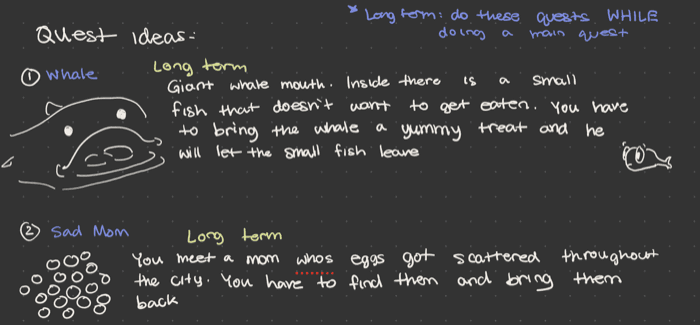 Quest ideas:
* Long term: do these quests WHILE
doing a main quest
① Whale
Long term
Giant whale mouth. Inside there is a small
fish that doesn't want to get eaten. You have
to bring the whale a yummy treat and he
will let the small fish leave
② Sad Mom
Long term
You meet a mom whos eggs got scattered throughout
the city. You have to find them and bring them
back